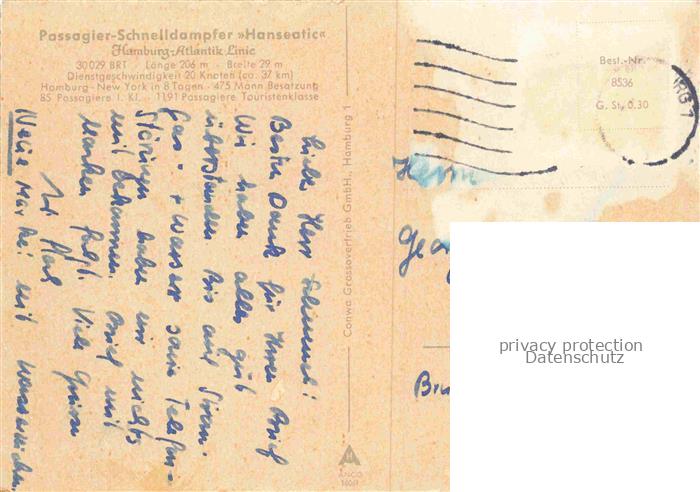 Passagier-Schnelldampfer »Hanseatic«
Hamburg-Atlantik Linie
30 029 BRT · Länge 206 m · Breite 29 m
Dienstgeschwindigkeit 20 Knoten (ca. 37 km)
Hamburg - New York in 8 Tagen · 475 Mann Besatzung
85 Passagiere I. Kl. · 1191 Passagiere Touristenklasse
Liebe Herr
Besten Dank für Ihren Brief
Wir haben alles gut
überstanden. Bis auf Strom-
Gas- + Wasser sowie Telefon-
Störungen haben wir nichts
mit bekommen. Brief mit
Marken folgt. Viele Grüsse
Ihr
Neue Marke: mit
Conwa Grossovertrieb GmbH., Hamburg 1
ANCO
Best.-Nr.
8536
G. St. 0.30
Herrn
privacy protection
Datenschutz